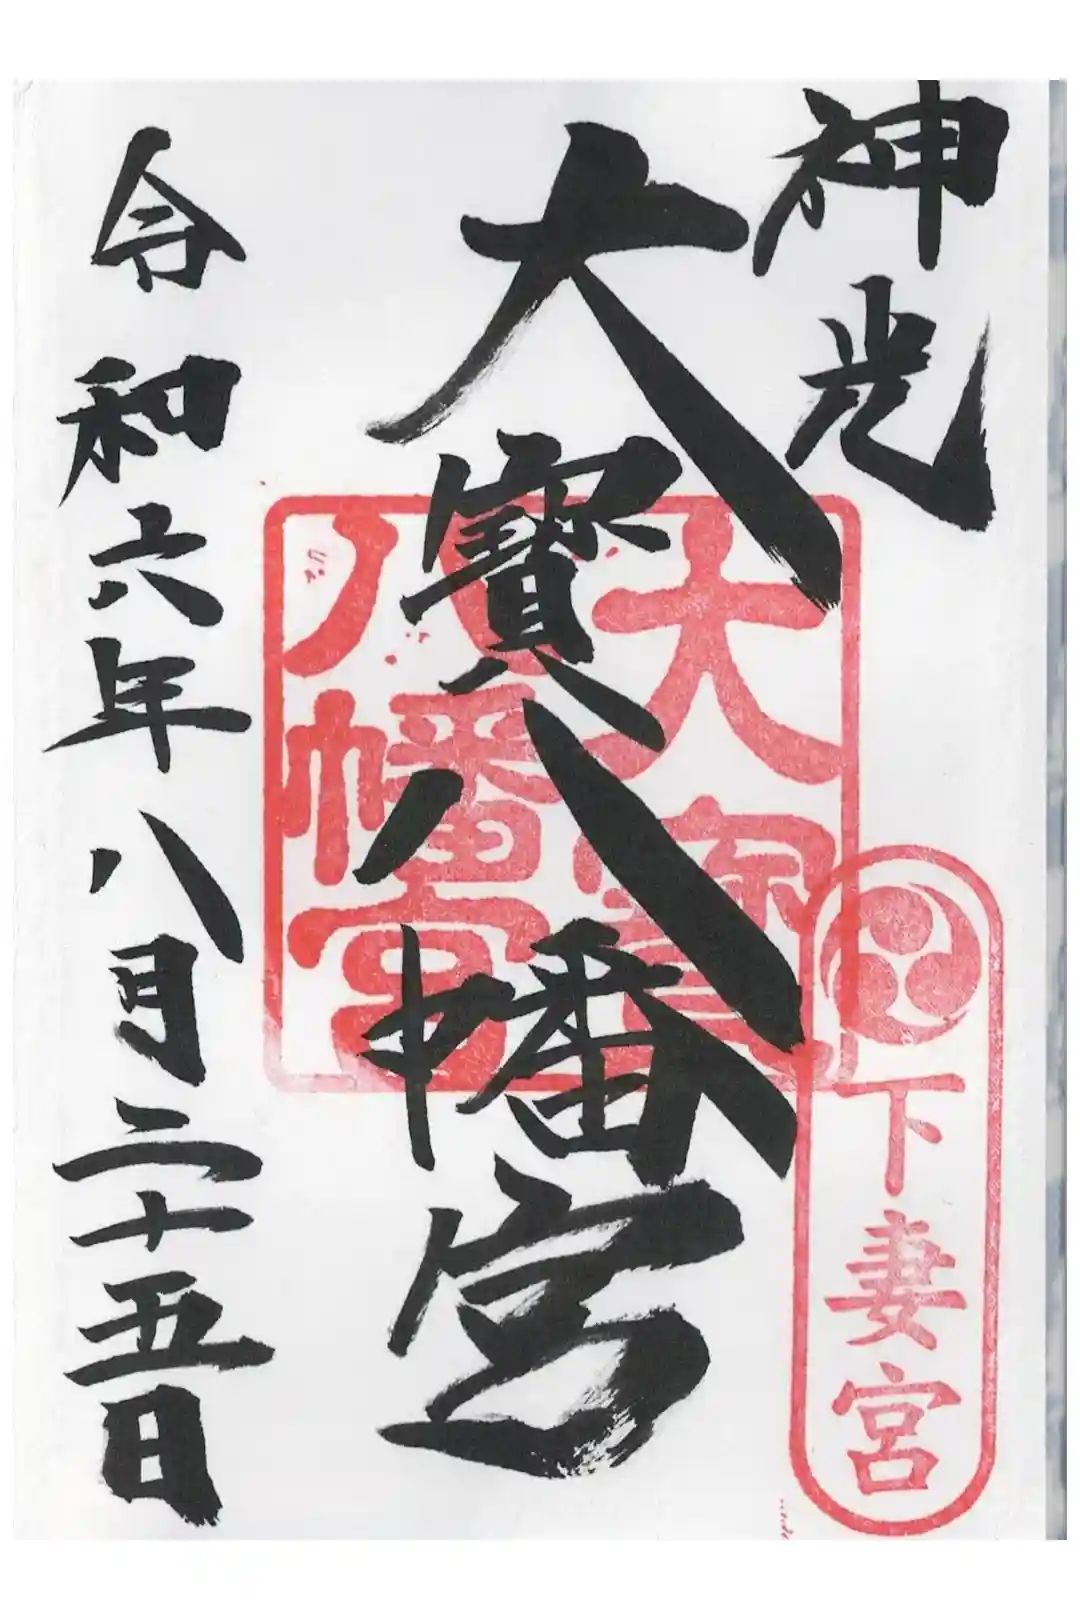 神光
下妻宮
大寶八幡宮
大寶
八幡宮
令和六年八月二十五日